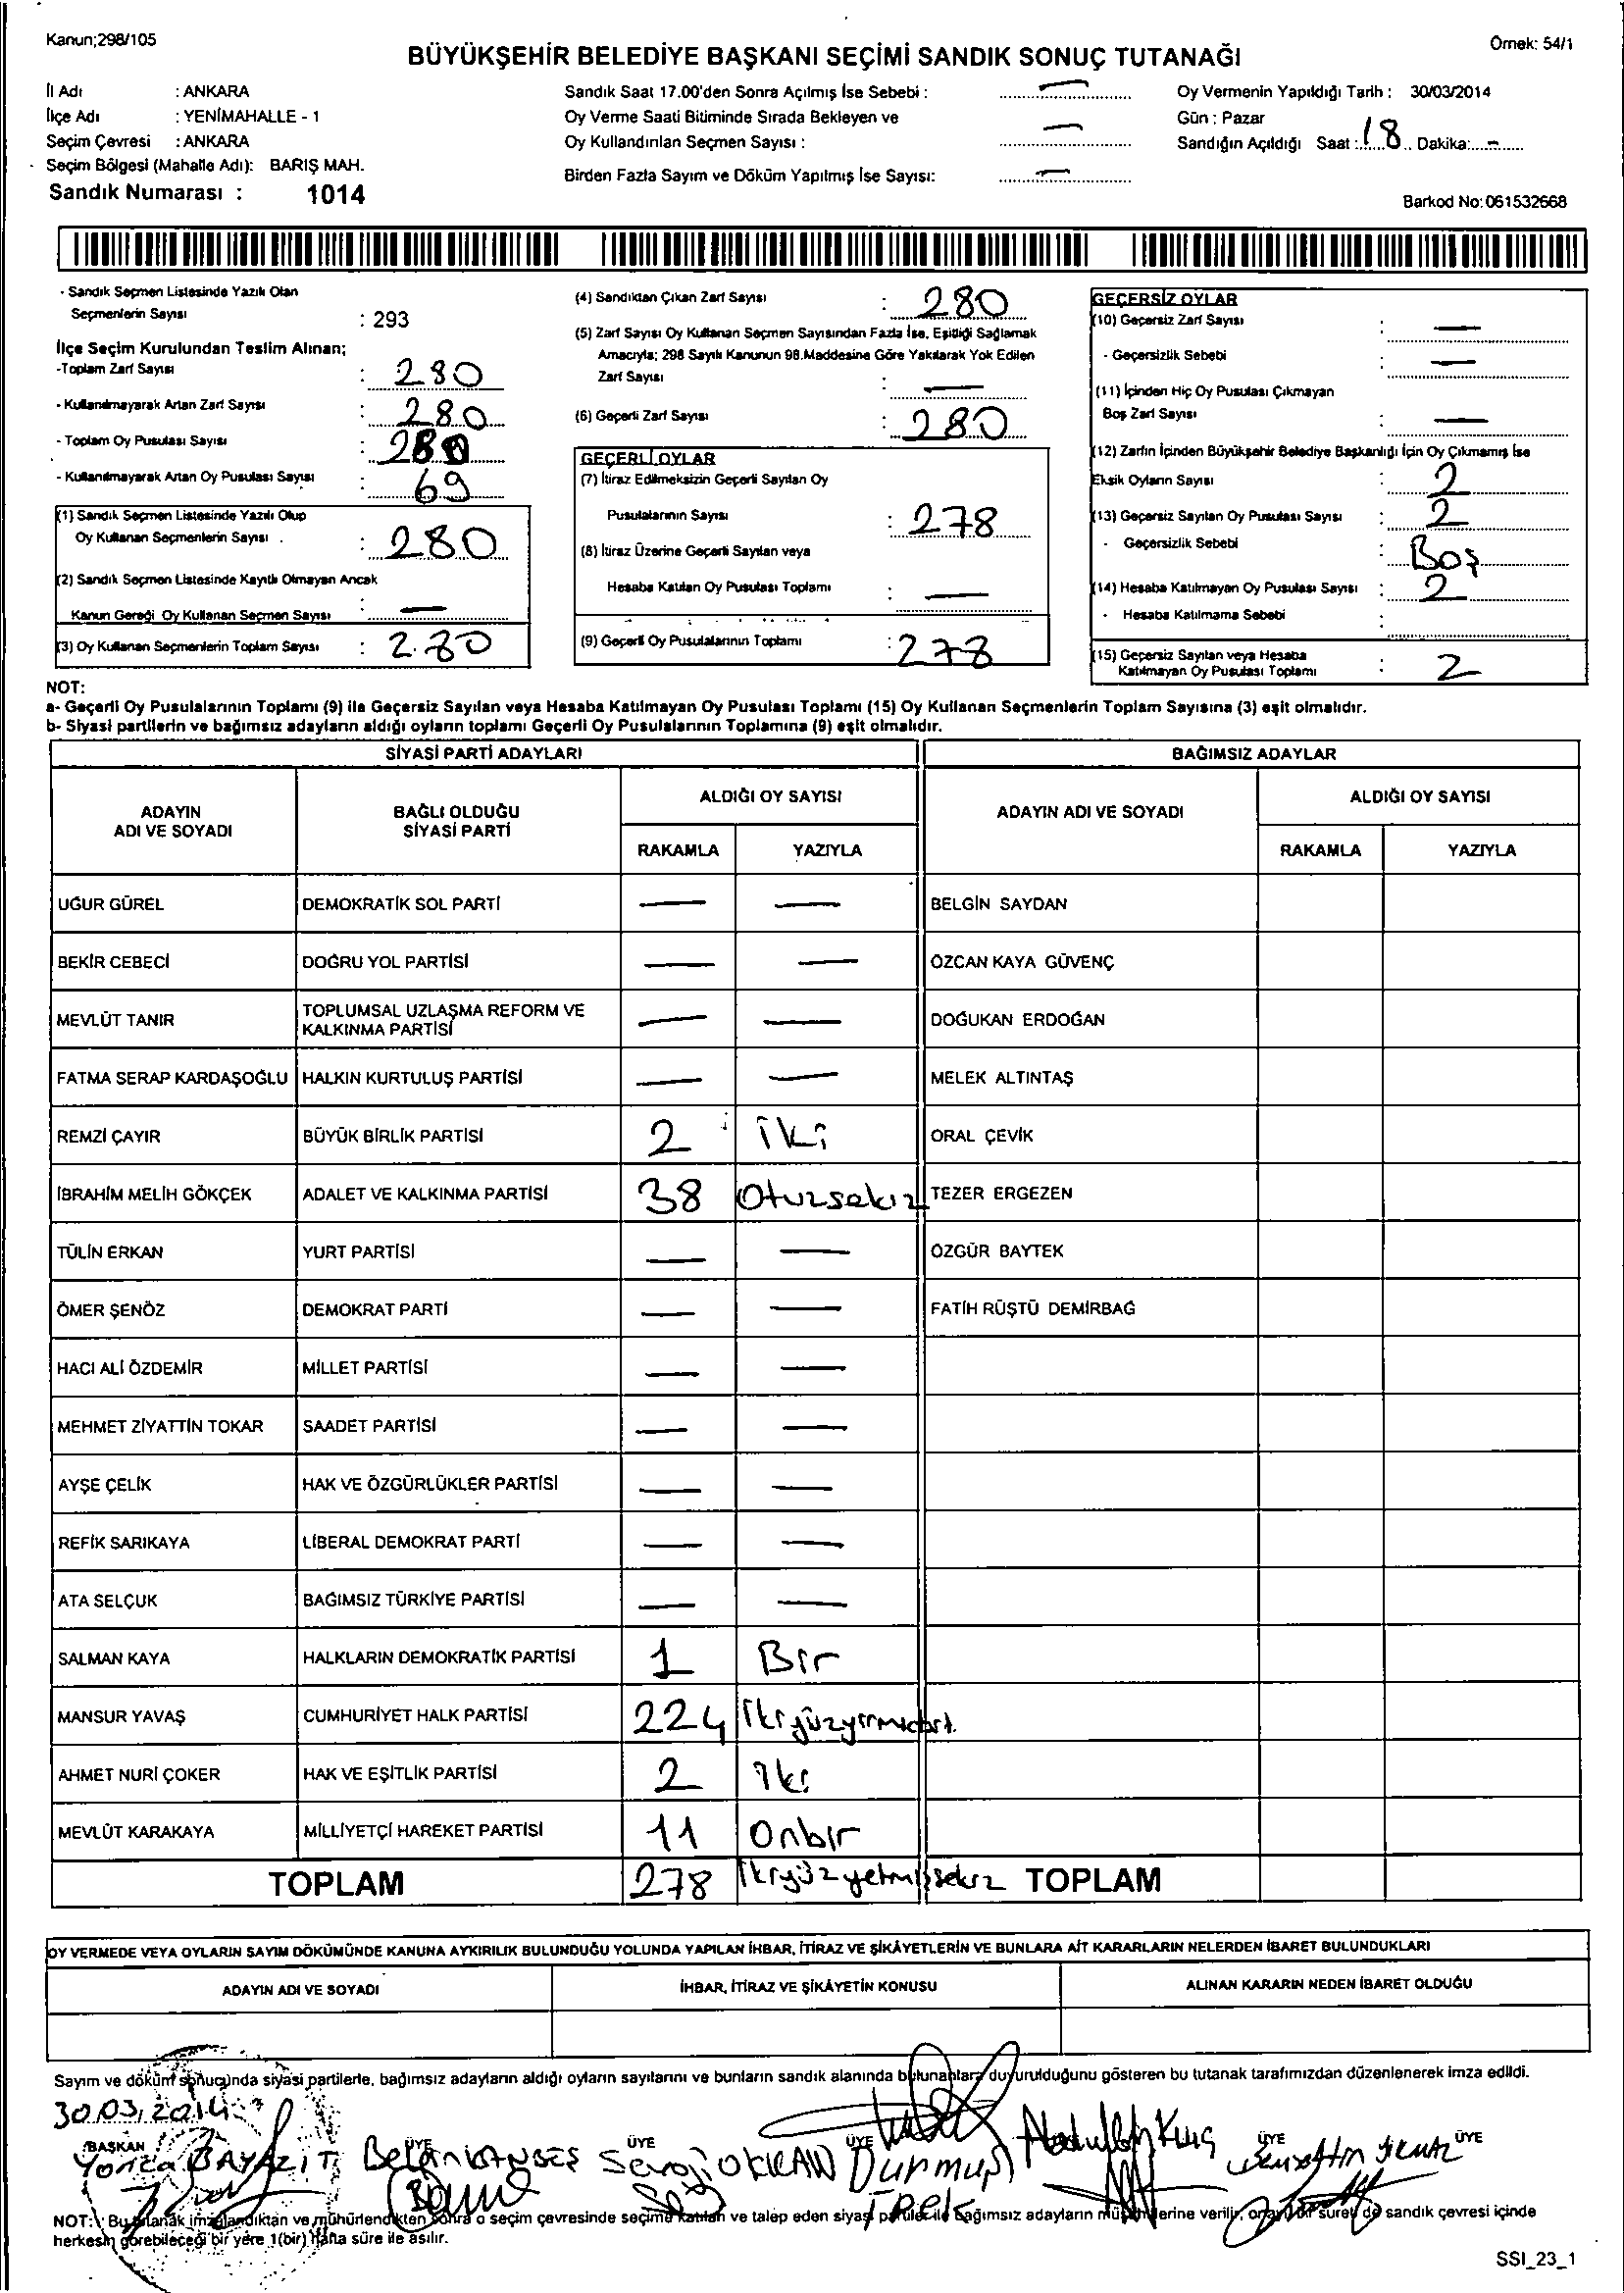 Kanun;298/105
Örnek: 54/1
BÜYÜKŞEHİR BELEDİYE BAŞKANI SEÇİMİ SANDIK SONUÇ TUTANAĞI
İl Adı : ANKARA
İlçe Adı : YENİMAHALLE - 1
Seçim Çevresi : ANKARA
Seçim Bölgesi (Mahalle Adı): BARIŞ MAH.
Sandık Numarası : 1014
Sandık Saat 17.00'den Sonra Açılmış İse Sebebi : —
Oy Verme Saati Bitiminde Sırada Bekleyen ve
Oy Kullandırılan Seçmen Sayısı : —
Birden Fazla Sayım ve Döküm Yapılmış İse Sayısı: —
Oy Vermenin Yapıldığı Tarih : 30/03/2014
Gün : Pazar
Sandığın Açıldığı Saat : 18 Dakika: -
Barkod No: 061532668
- Sandık Seçmen Listesinde Yazılı Olan
Seçmenlerin Sayısı : 293
İlçe Seçim Kurulundan Teslim Alınan;
-Toplam Zarf Sayısı : 280
- Kullanılmayarak Artan Zarf Sayısı : 280
- Toplam Oy Pusulası Sayısı : 280
- Kullanılmayarak Artan Oy Pusulası Sayısı : 69
(1) Sandık Seçmen Listesinde Yazılı Olup
Oy Kullanan Seçmenlerin Sayısı : 280
(2) Sandık Seçmen Listesinde Kayıtlı Olmayan Ancak
Kanun Gereği Oy Kullanan Seçmen Sayısı : —
(3) Oy Kullanan Seçmenlerin Toplam Sayısı : 280
(4) Sandıktan Çıkan Zarf Sayısı : 280
(5) Zarf Sayısı Oy Kullanan Seçmen Sayısından Fazla İse, Eşitliği Sağlamak
Amacıyla; 298 Sayılı Kanunun 98.Maddesine Göre Yakılarak Yok Edilen
Zarf Sayısı : —
(6) Geçerli Zarf Sayısı : 280
GEÇERLİ OYLAR
(7) İtiraz Edilmeksizin Geçerli Sayılan Oy
Pusulalarının Sayısı : 278
(8) İtiraz Üzerine Geçerli Sayılan veya
Hesaba Katılan Oy Pusulası Toplamı : —
(9) Geçerli Oy Pusulalarının Toplamı : 278
GEÇERSİZ OYLAR
(10) Geçersiz Zarf Sayısı : —
- Geçersizlik Sebebi : —
(11) İçinden Hiç Oy Pusulası Çıkmayan
Boş Zarf Sayısı : —
(12) Zarfın İçinden Büyükşehir Belediye Başkanlığı İçin Oy Çıkmamış İse
Eksik Oyların Sayısı : 2
(13) Geçersiz Sayılan Oy Pusulası Sayısı : 2
- Geçersizlik Sebebi : Boş
(14) Hesaba Katılmayan Oy Pusulası Sayısı : 2
- Hesaba Katılmama Sebebi :
(15) Geçersiz Sayılan veya Hesaba
Katılmayan Oy Pusulası Toplamı : 2
NOT:
a- Geçerli Oy Pusulalarının Toplamı (9) ile Geçersiz Sayılan veya Hesaba Katılmayan Oy Pusulası Toplamı (15) Oy Kullanan Seçmenlerin Toplam Sayısına (3) eşit olmalıdır.
b- Siyasi partilerin ve bağımsız adayların aldığı oyların toplamı Geçerli Oy Pusulalarının Toplamına (9) eşit olmalıdır.
SİYASİ PARTİ ADAYLARI BAĞIMSIZ ADAYLAR
ADAYIN ADI VE SOYADI BAĞLI OLDUĞU SİYASİ PARTİ ALDIĞI OY SAYISI ADAYIN ADI VE SOYADI ALDIĞI OY SAYISI
RAKAMLA YAZIYLA RAKAMLA YAZIYLA
UĞUR GÜREL DEMOKRATİK SOL PARTİ — — BELGİN SAYDAN
BEKİR CEBECİ DOĞRU YOL PARTİSİ — — ÖZCAN KAYA GÜVENÇ
MEVLÜT TANIR TOPLUMSAL UZLAŞMA REFORM VE KALKINMA PARTİSİ — — DOĞUKAN ERDOĞAN
FATMA SERAP KARDAŞOĞLU HALKIN KURTULUŞ PARTİSİ — — MELEK ALTINTAŞ
REMZİ ÇAYIR BÜYÜK BİRLİK PARTİSİ 2 iki ORAL ÇEVİK
İBRAHİM MELİH GÖKÇEK ADALET VE KALKINMA PARTİSİ 38 Otuzsekiz TEZER ERGEZEN
TÜLİN ERKAN YURT PARTİSİ — — ÖZGÜR BAYTEK
ÖMER ŞENÖZ DEMOKRAT PARTİ — — FATİH RÜŞTÜ DEMİRBAĞ
HACI ALİ ÖZDEMİR MİLLET PARTİSİ — —
MEHMET ZİYATTİN TOKAR SAADET PARTİSİ — —
AYŞE ÇELİK HAK VE ÖZGÜRLÜKLER PARTİSİ — —
REFİK SARIKAYA LİBERAL DEMOKRAT PARTİ — —
ATA SELÇUK BAĞIMSIZ TÜRKİYE PARTİSİ — —
SALMAN KAYA HALKLARIN DEMOKRATİK PARTİSİ 1 Bir
MANSUR YAVAŞ CUMHURİYET HALK PARTİSİ 224 İkiyüzyirmidört.
AHMET NURİ ÇOKER HAK VE EŞİTLİK PARTİSİ 2 İki
MEVLÜT KARAKAYA MİLLİYETÇİ HAREKET PARTİSİ 11 Onbir
TOPLAM 278 İkiyüzyetmişsekiz TOPLAM
OY VERMEDE VEYA OYLARIN SAYIM DÖKÜMÜNDE KANUNA AYKIRILIK BULUNDUĞU YOLUNDA YAPILAN İHBAR, İTİRAZ VE ŞİKÂYETLERİN VE BUNLARA AİT KARARLARIN NELERDEN İBARET BULUNDUKLARI
ADAYIN ADI VE SOYADI İHBAR, İTİRAZ VE ŞİKÂYETİN KONUSU ALINAN KARARIN NEDEN İBARET OLDUĞU
Sayım ve döküm sonucunda siyasi partilerle, bağımsız adayların aldığı oyların sayılarını ve bunların sandık alanında bulunanlara duyurulduğunu gösteren bu tutanak tarafımızdan düzenlenerek imza edildi.
30.03.2014
BAŞKAN ÜYE ÜYE ÜYE ÜYE ÜYE
BAYAZIT Sevgi Durmuş Abdullah Kılıç
İpek
NOT: Bu tutanak imzalandıktan ve mühürlendikten sonra o seçim çevresinde seçime katılan ve talep eden siyasi partiler ile bağımsız adayların müşahitlerine verilir, onaylı bir sureti de sandık çevresi içinde
herkesin görebileceği bir yere 1(bir) hafta süre ile asılır.
SSI_23_1